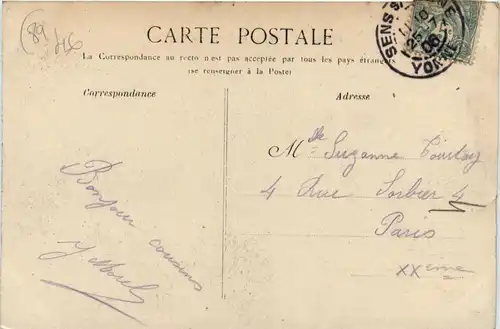 (89
CARTE POSTALE
La Correspondance au recto n'est pas acceptée par tous les pays étrangers
(se renseigner à la Poste)
SENS
YONNE
Correspondance
Adresse
Bonjour cousins
Mlle Suzanne
4 Rue Sorbier 4
Paris
XXème